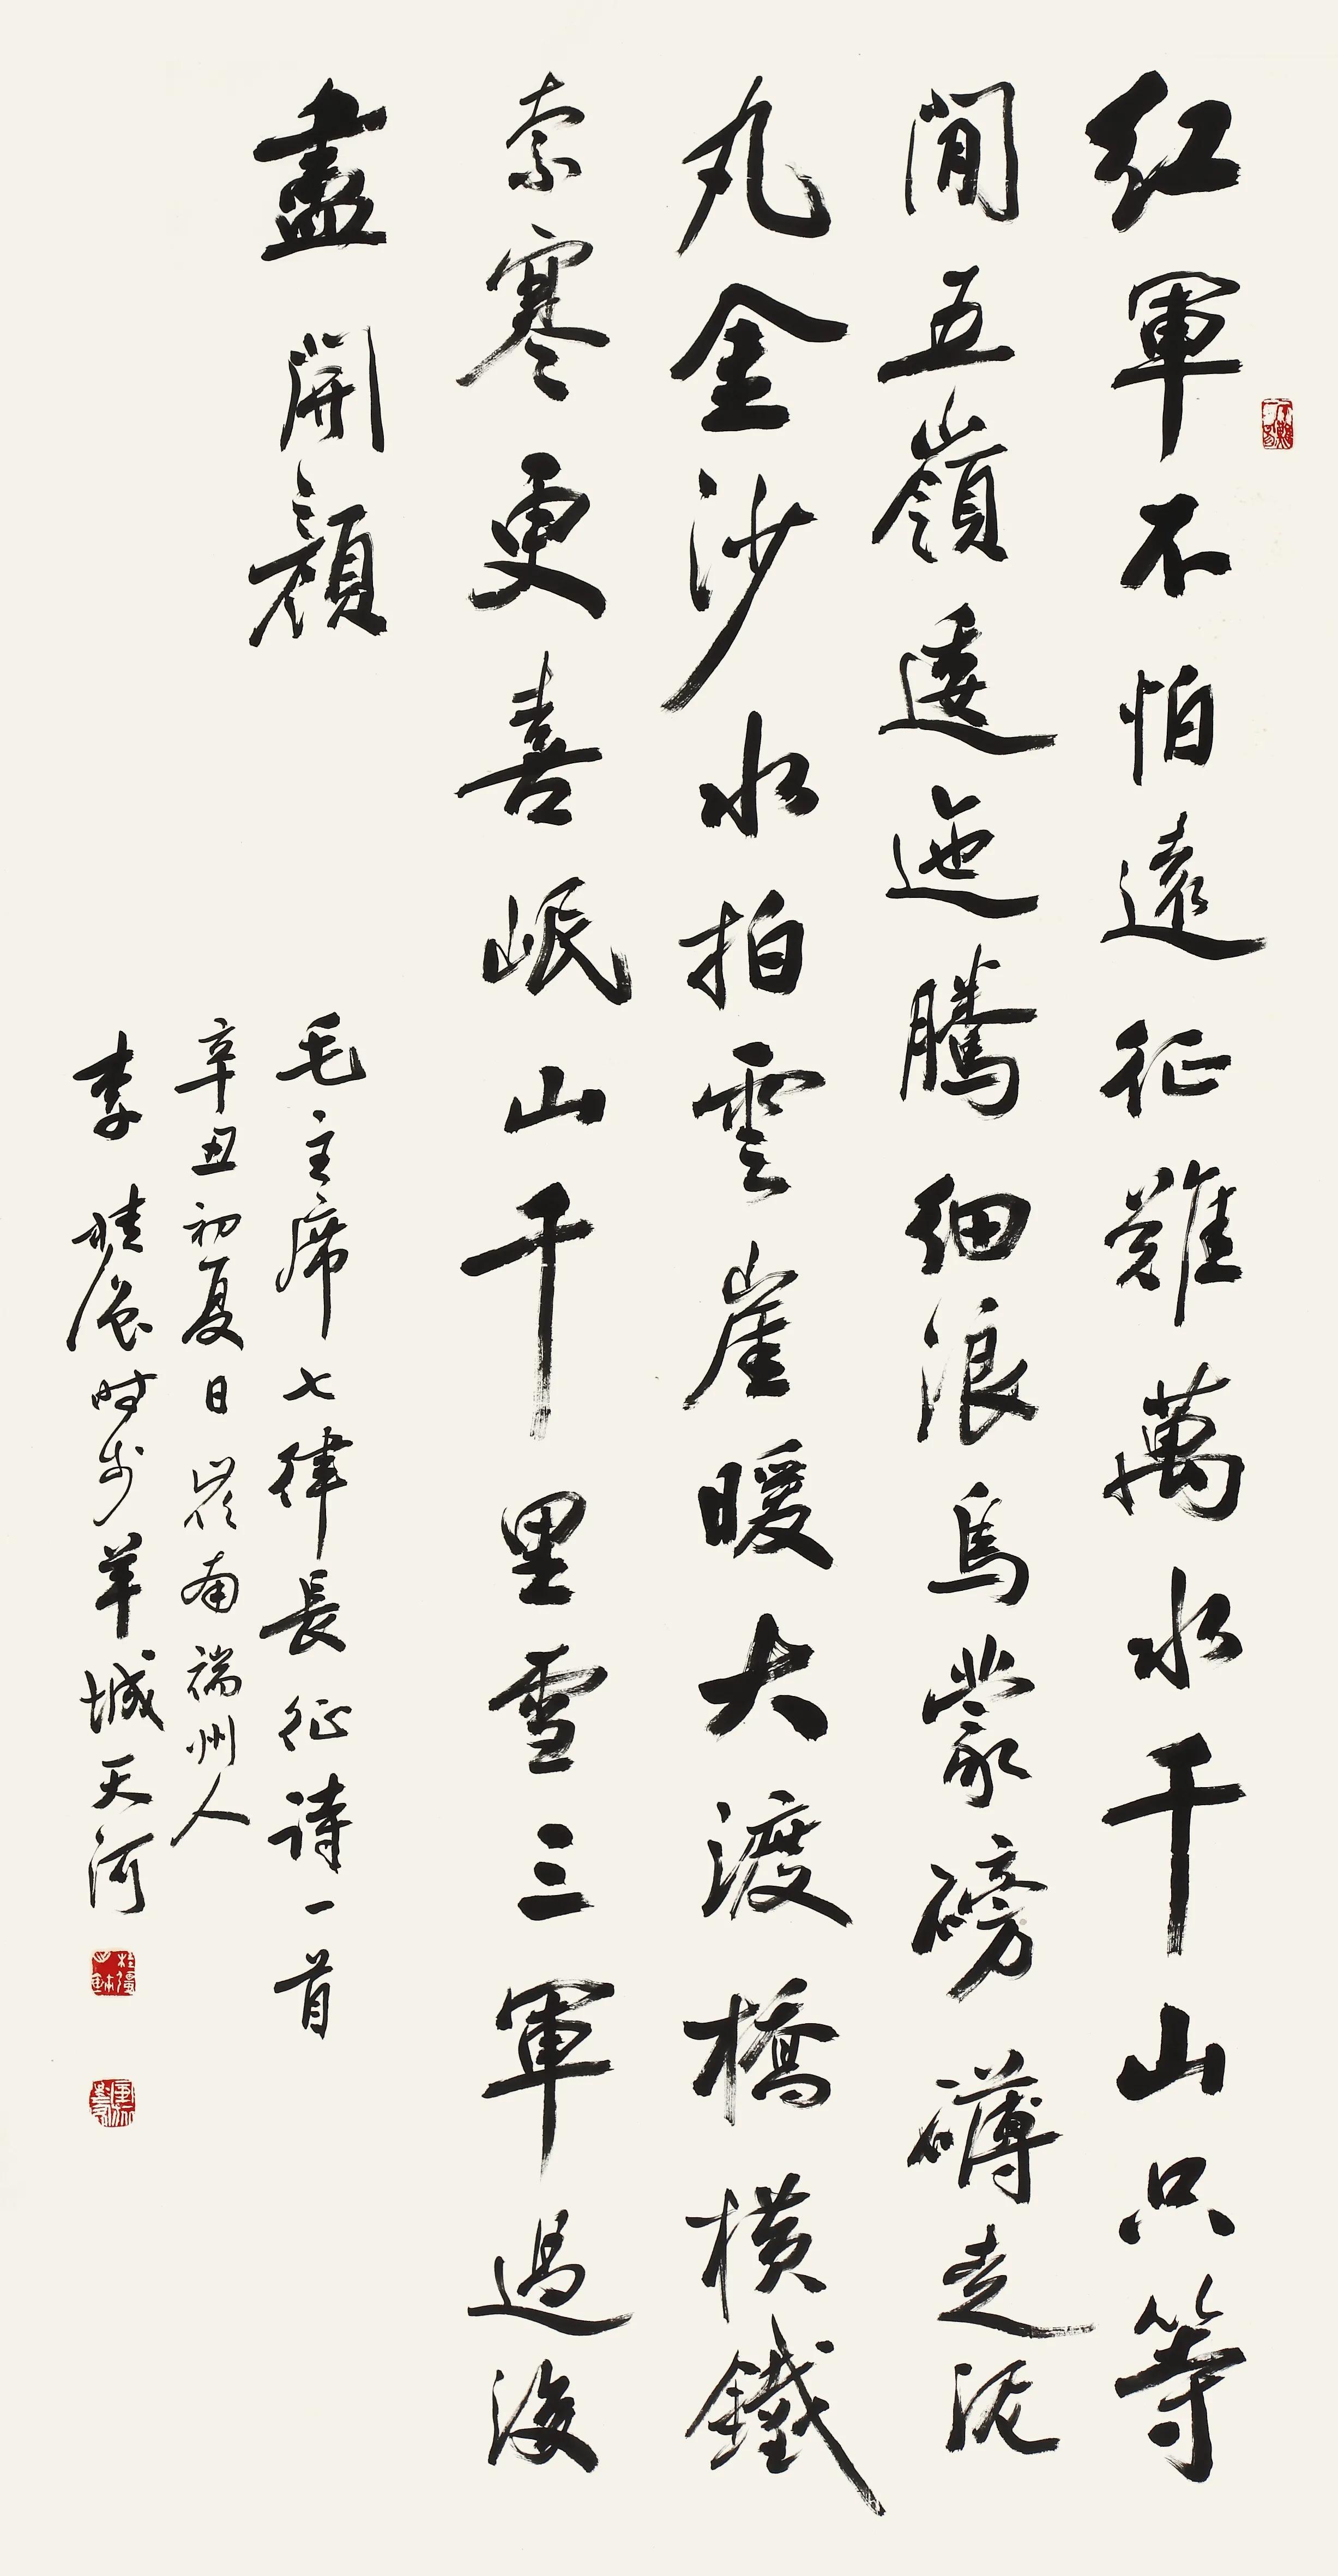 红軍不怕遠征難萬水千山只等
閒五嶺逶迤騰細浪烏蒙磅礴走泥
丸金沙水拍雲崖暖大渡橋橫鐵
索寒更喜岷山千里雪三軍過後
盡開顏
毛主席七律長征诗一首
辛丑初夏日岭南端州人
李桂强时步羊城天河